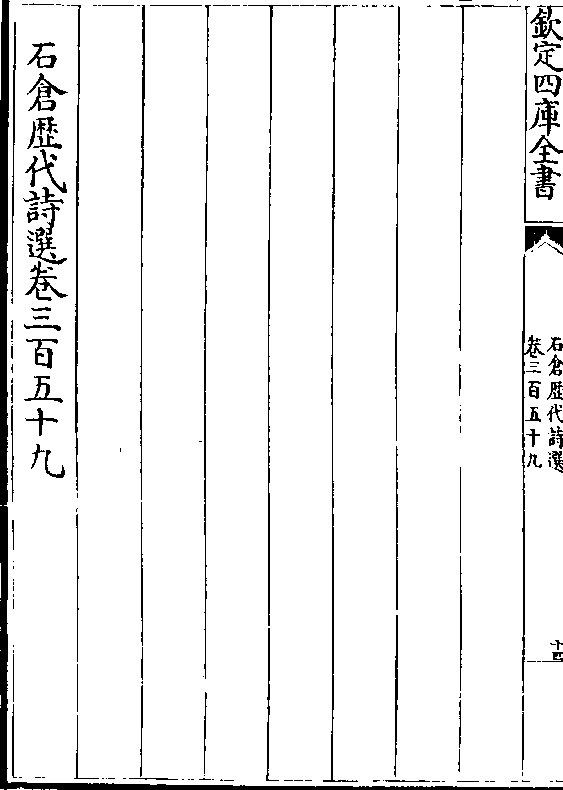 欽定四庫全書
石倉歷代詩選
卷三百五十九
十四
石倉歷代詩選卷三百五十九